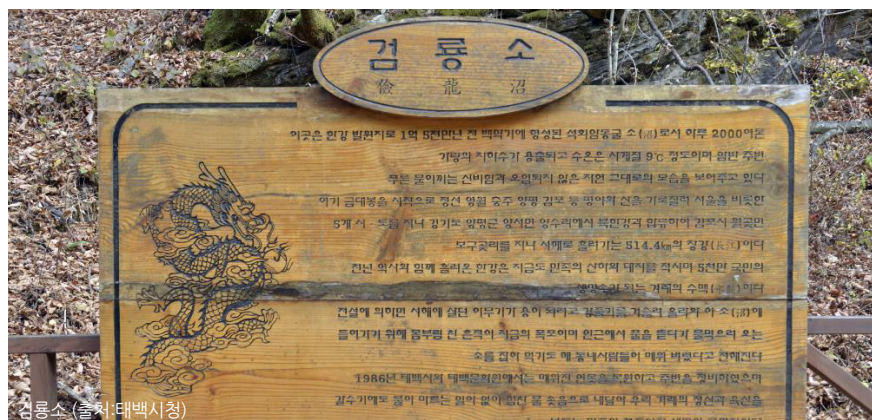 검룡소
儉龍沼
이곳은 한강 발원지로 1억 5천만년 전 백악기에 형성된 석회암동굴 소(沼)로서 하루 2000여톤
가량의 지하수가 용출되고 수온은 사계절 9℃ 정도이며 암반 주변
푸른 물이끼는 신비함과 오염되지 않은 자연 그대로의 모습을 보여주고 있다
여기 금대봉을 시작으로 정선 영월 충주 양평 김포 등 평야와 산을 가로질러 서울을 비롯한
5개 시·도를 지나 경기도 양평군 양서면 양수리에서 북한강과 합류하여 김포시 월곶면
보구곶리를 지나 서해로 흘러가는 514.4㎞의 장강(長江)이다
천년 역사와 함께 흘러온 한강은 지금도 민족의 산하와 대지를 적시며 5천만 국민의
생명수가 되는 겨레의 수맥이다
전설에 의하면 서해에 살던 이무기가 용이 되려고 강줄기를 거슬러 올라와 이 소(沼)에
들어가기 위해 몸부림 친 흔적이 지금의 폭포이며 인근에서 풀을 뜯다가 물먹으러 오는
소를 잡아 먹기도 해 동네사람들이 메워 버렸다고 전해진다
1986년 태백시와 태백문화원에서는 메워진 연못을 복원하고 주변을 정비하였으며
갈수기에도 물이 마르는 일이 없이 힘찬 물 솟음으로 내달아 우리 겨레의 정신과 육신을
검룡소 (출처:태백시청)